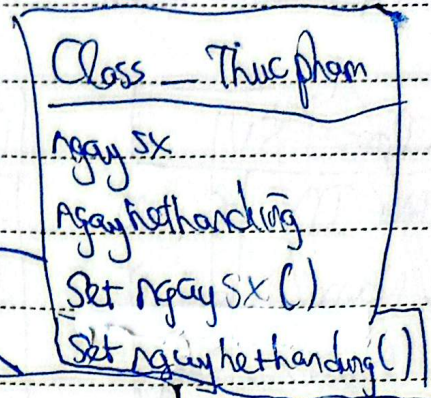 Class _ Thuc pham
ngay sx
ngay hethandung
Set ngay sx ()
Set ngay hethandung ()